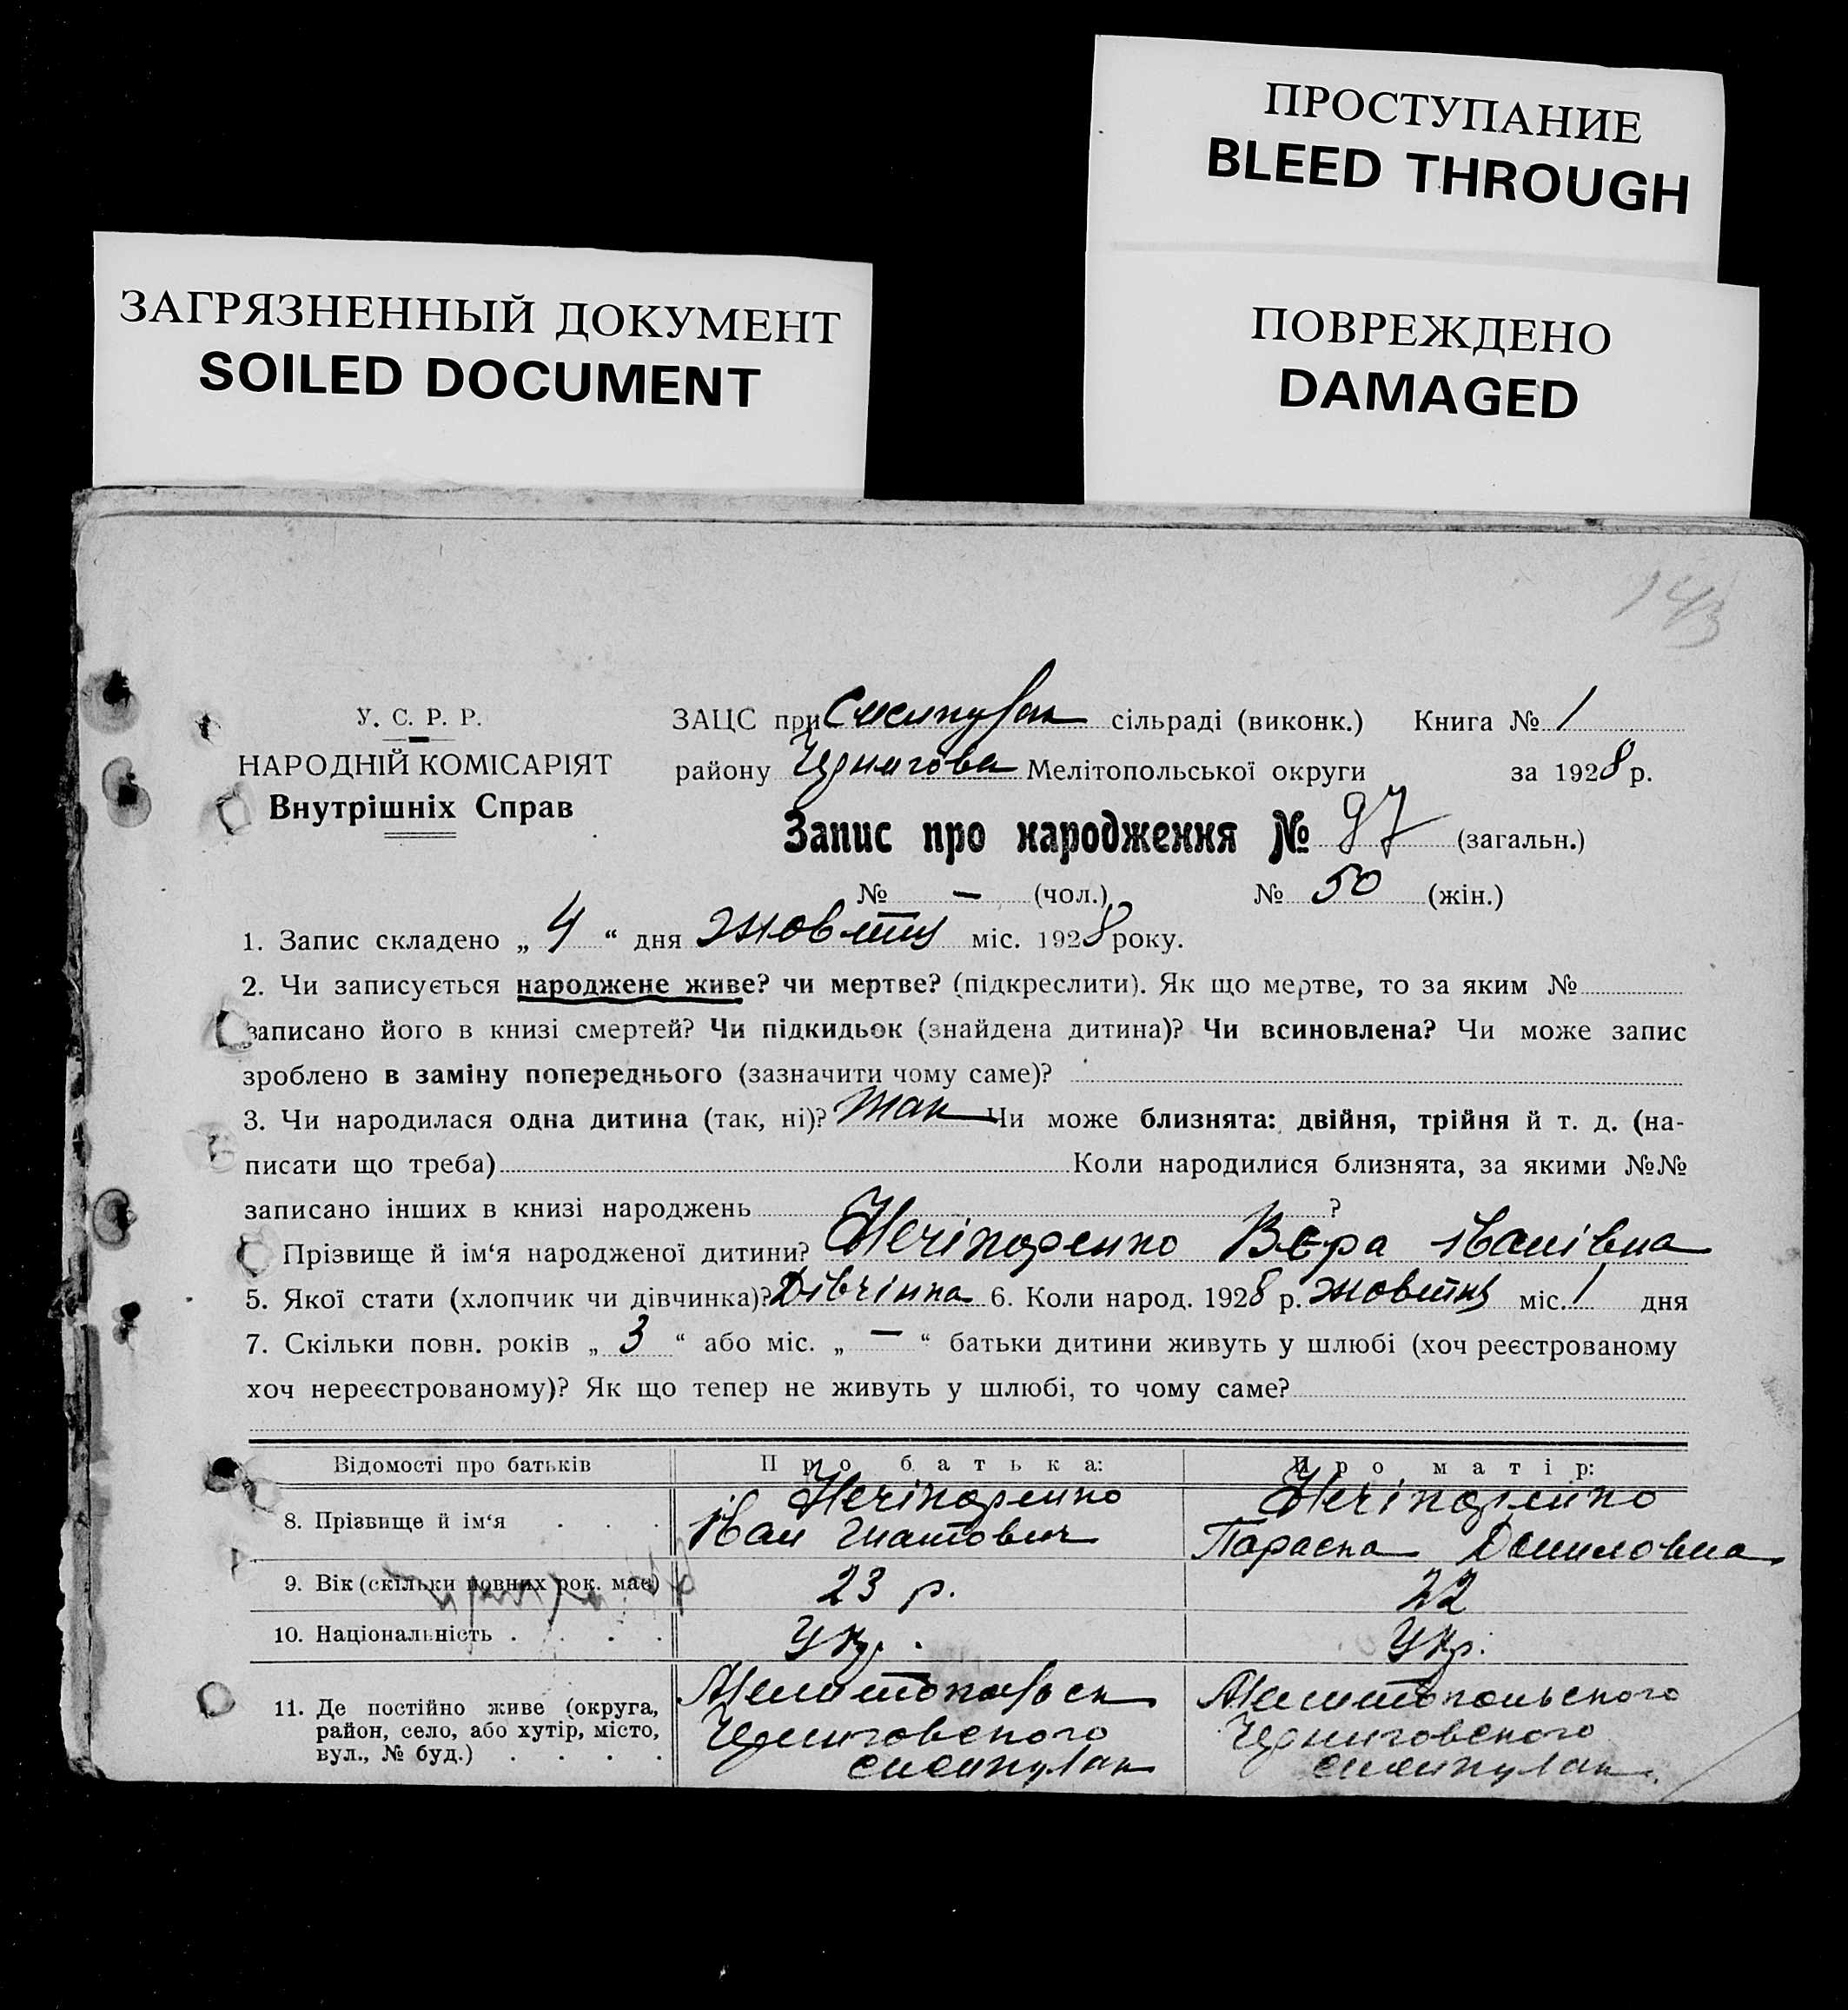 ПРОСТУПАНИЕ
BLEED THROUGH
ЗАГРЯЗНЕННЫЙ ДОКУМЕНТ
SOILED DOCUMENT
ПОВРЕЖДЕНО
DAMAGED
143
У. С. Р. Р.
НАРОДНІЙ КОМІСАРІЯТ
Внутрішніх Справ
ЗАЦС при сільраді (виконк.) Книга № 1
району Чернигова Мелітопольської округи за 1928 р.
Запис про народження № 97 (загальн.)
№ — (чол.) № 50 (жін.)
1. Запис складено „ 4 “ дня жовтня міс. 1928 року.
2. Чи записується народжене живе? чи мертве? (підкреслити). Як що мертве, то за яким №
записано його в книзі смертей? Чи підкидьок (знайдена дитина)? Чи всиновлена? Чи може запис
зроблено в заміну попереднього (зазначити чому саме)?
3. Чи народилася одна дитина (так, ні)? Так Чи може близнята: двійня, трійня й т. д. (на-
писати що треба) Коли народилися близнята, за якими №№
записано інших в книзі народжень ?
Прізвище й ім‘я народженої дитини? Нечіпоренко Вєра Іванівна
5. Якої стати (хлопчик чи дівчинка)? Дівчінка 6. Коли народ. 1928 р. жовтня міс. 1 дня
7. Скільки повн. років „ 3 “ або міс. „ — “ батьки дитини живуть у шлюбі (хоч реєстрованому
хоч нереєстрованому)? Як що тепер не живуть у шлюбі, то чому саме?
Відомості про батьків Про батька: Про матір:
8. Прізвище й ім‘я . . . Нечіпоренко Нечіпоренко
Іван Гнатович Параска Даниловна
9. Вік (скільки повних рок. має) 23 р. 22
10. Національність . . . . Укр. Укр.
11. Де постійно живе (округа,
район, село, або хутір, місто,
вул., № буд.) . . . . Мелитопольск Мелитопольского
Черниговского Черниговского